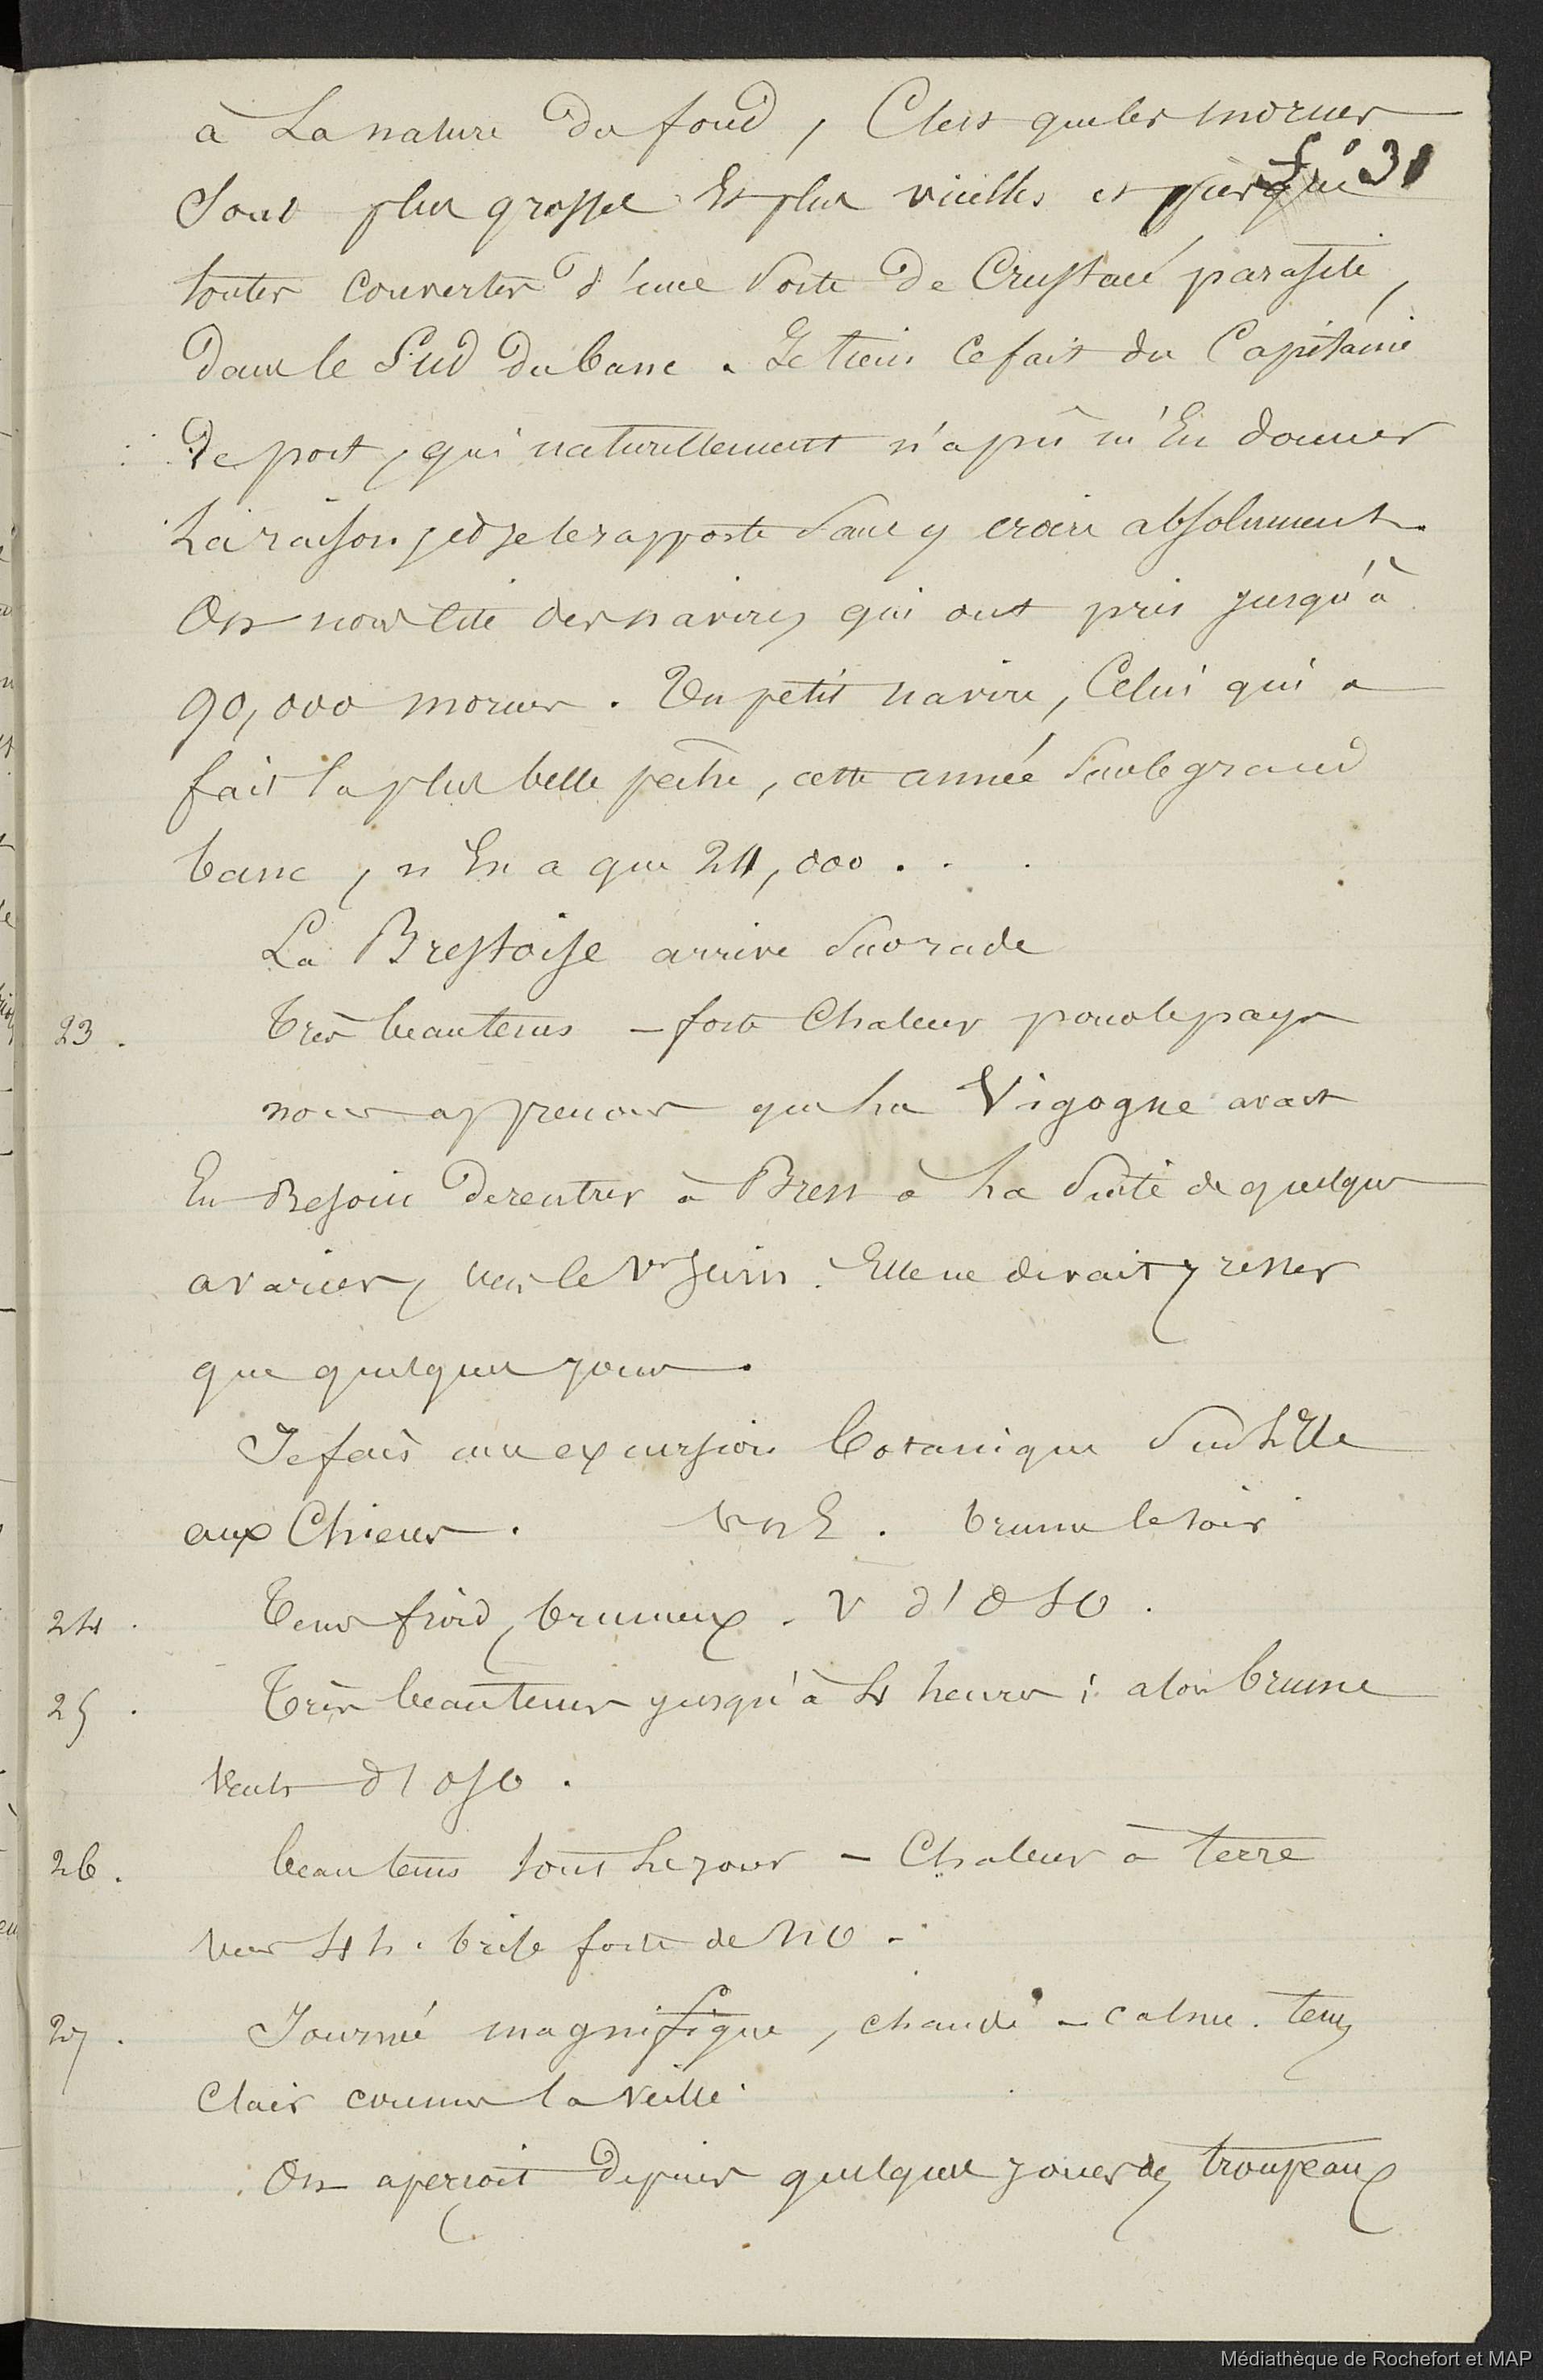 à La nature du fond, C'est que les morues
f° 31
Sont plus grosses Et plus vieilles et presque
toutes couvertes d'une Sorte de Crustacé parasite,
Dans le Sud du banc. Je tiens ce fait du Capitaine
De port, qui naturellement n'a pû m'En donner
La raison, et je le rapporte Sans y croire absolument.
On nous cite des navires qui ont pris jusqu'à
90,000 morues. Un petit navire, Celui qui a
fait la plus belle pêche, cette année Sur le grand
banc, n'En a que 24,000 . . .
La Brestoise arrive Sur rade
23. Très beau tems – forte Chaleur pour le pays
nous apprenons que La Vigogne avait
Eu Besoin De rentrer à Brest à La Suite de quelques
avaries, vers le 1er Juin. Elle ne devait y rester
que quelques jours.
Je fais une excursion botanique Sur L'Ile
aux Chiens. V n E. brume le soir
24. Tems froid, brumeux. V d'OSO.
25. Très beau tems jusqu'à 4 heures ; alors brume
Vents d'OSO.
26. beau tems tout Le jour – Chaleur à terre
vers 4 h. brise forte de NO.
27. Journée magnifique, chaude – calme. tems
Clair comme la veille.
On aperçoit Depuis quelques jours des troupeaux
Médiathèque de Rochefort et MAP